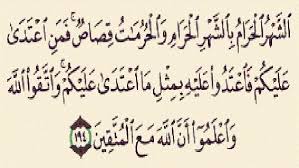 ٱلشَّهْرُ ٱلْحَرَامُ بِٱلشَّهْرِ ٱلْحَرَامِ وَٱلْحُرُمَٰتُ قِصَاصٌ ۚ فَمَنِ ٱعْتَدَىٰ
عَلَيْكُمْ فَٱعْتَدُوا۟ عَلَيْهِ بِمِثْلِ مَا ٱعْتَدَىٰ عَلَيْكُمْ ۚ وَٱتَّقُوا۟ ٱللَّهَ
وَٱعْلَمُوٓا۟ أَنَّ ٱللَّهَ مَعَ ٱلْمُتَّقِينَ ١٩٤